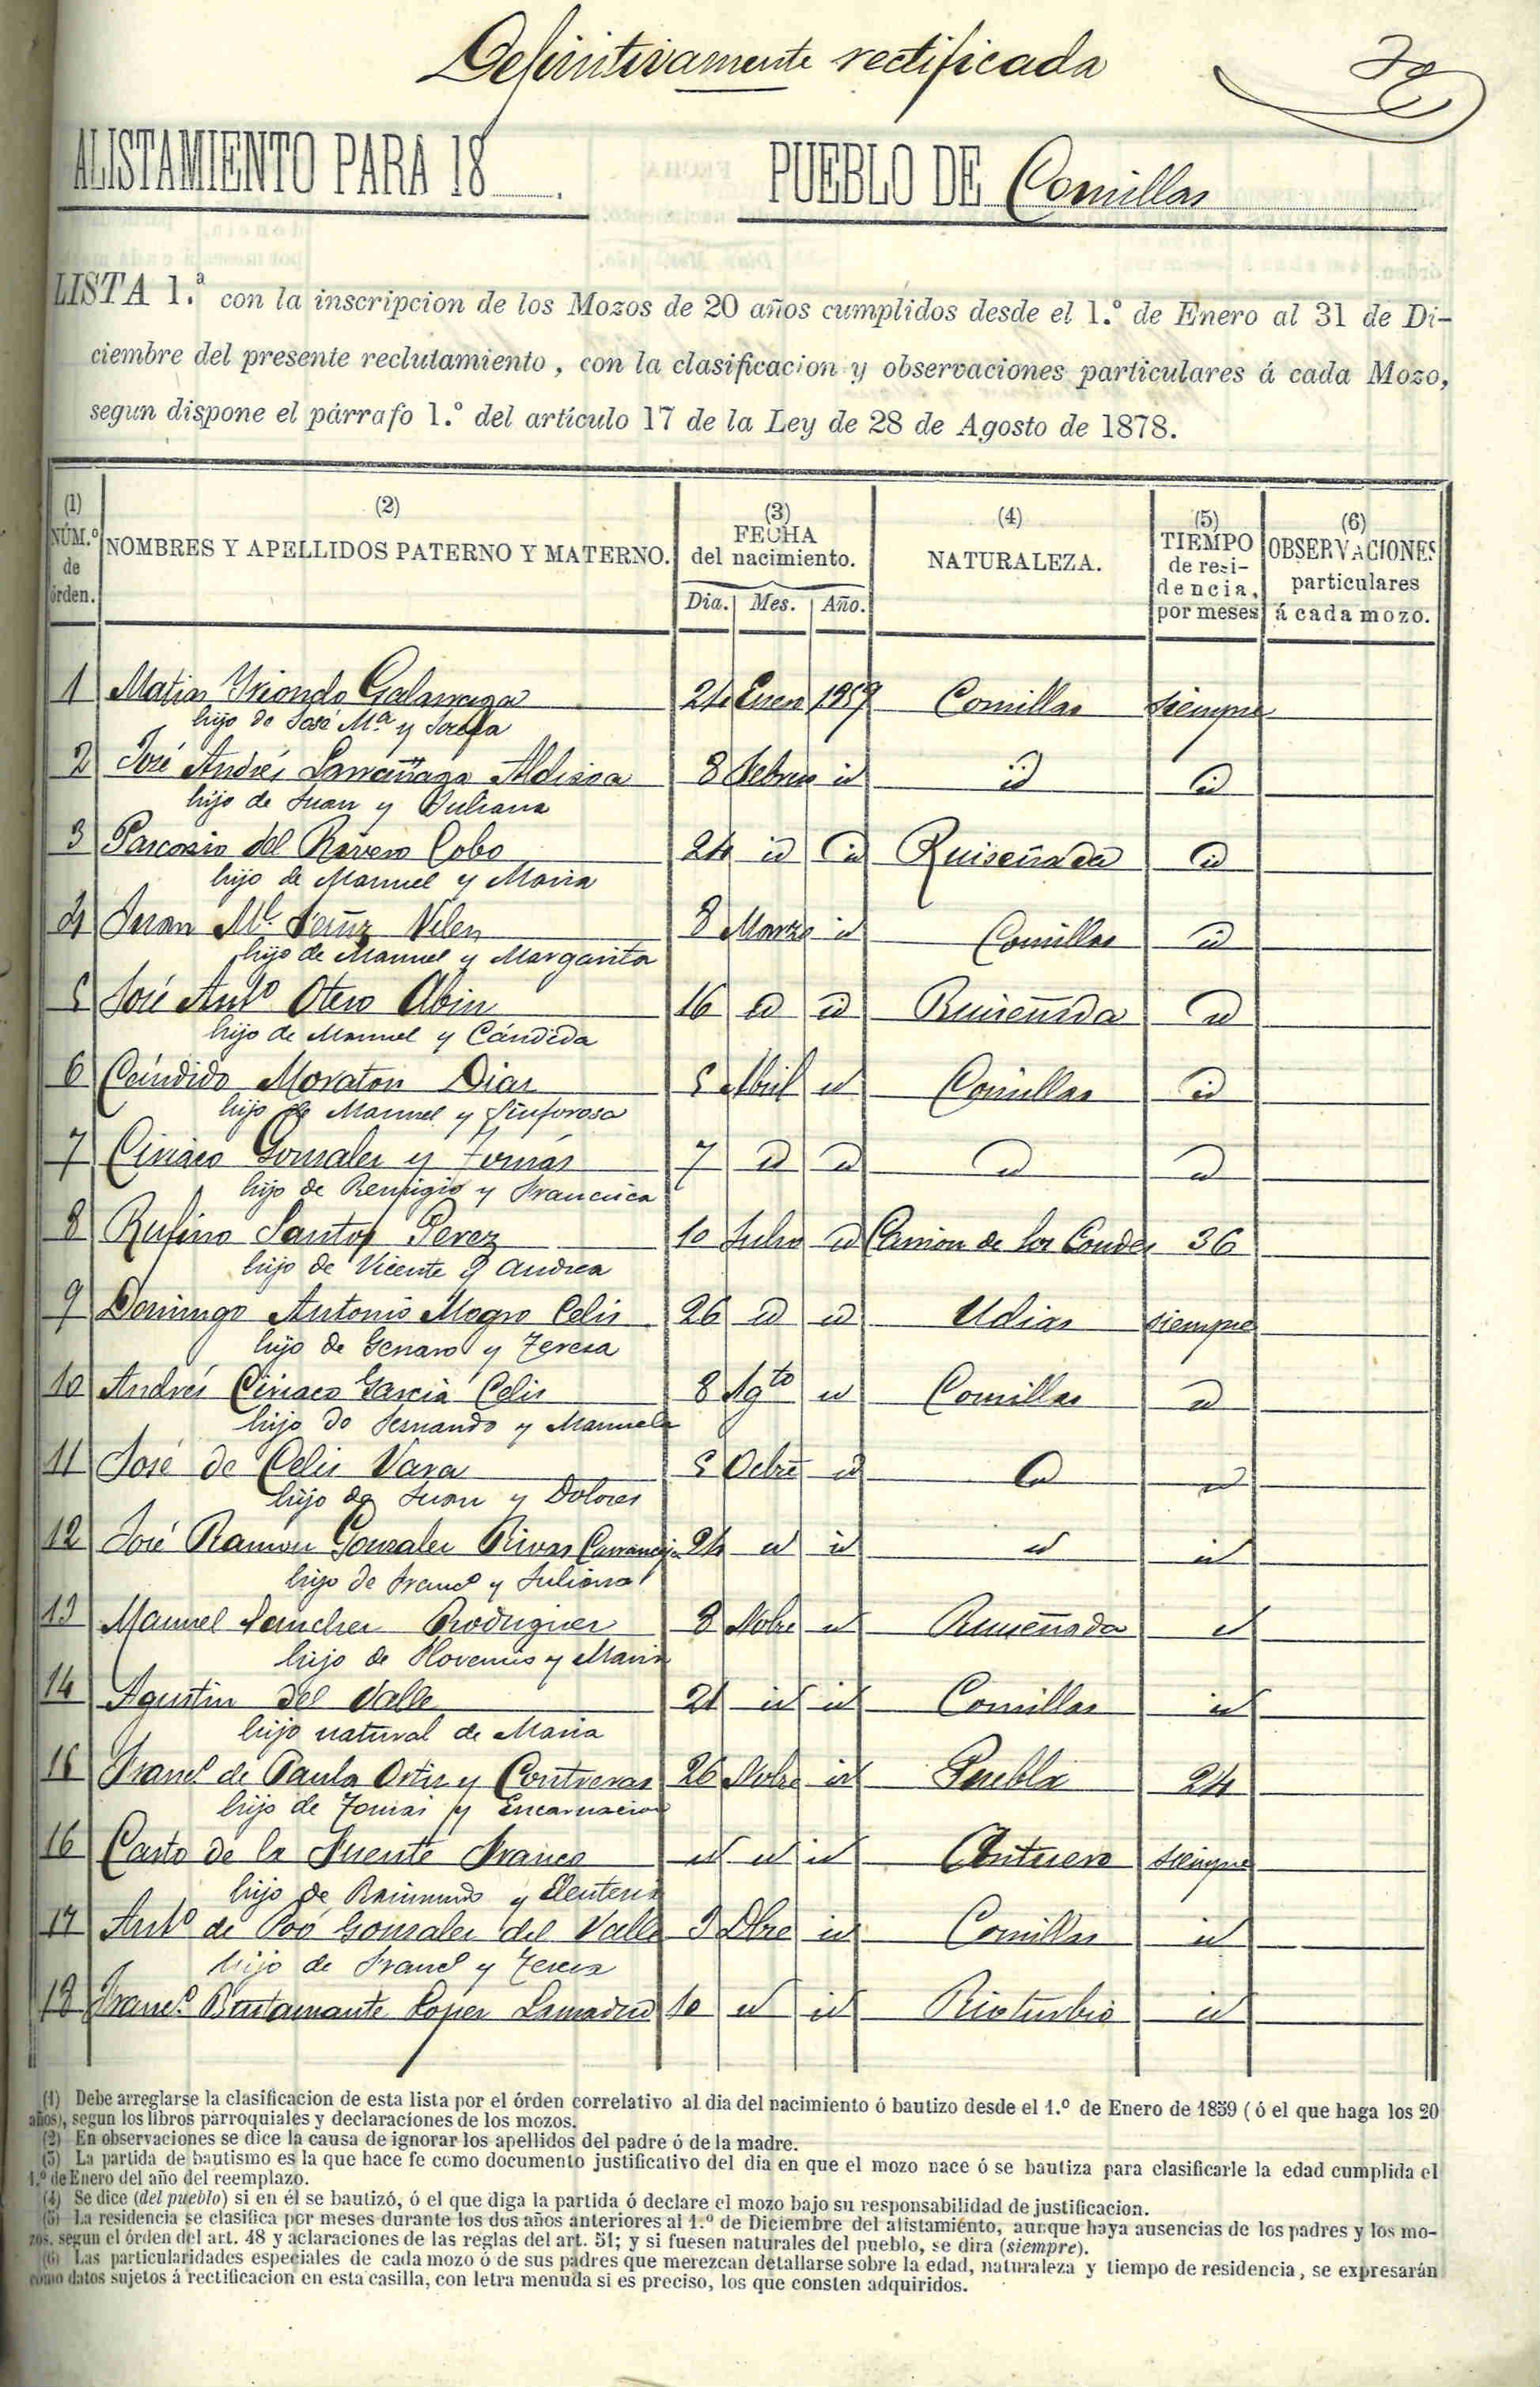 Definitivamente rectificada
ALISTAMIENTO PARA 18 .
PUEBLO DE Comillas
LISTA 1.ª con la inscripcion de los Mozos de 20 años cumplidos desde el 1.º de Enero al 31 de Di-
ciembre del presente reclutamiento, con la clasificacion y observaciones particulares á cada Mozo,
segun dispone el párrafo 1.º del artículo 17 de la Ley de 28 de Agosto de 1878.
(1) NÚM.º de órden. (2) NOMBRES Y APELLIDOS PATERNO Y MATERNO. (3) FECHA del nacimiento. Dia. Mes. Año. (4) NATURALEZA. (5) TIEMPO de resi-dencia, por meses (6) OBSERVACIONES particulares á cada mozo.
1 Matias Yriondo Galarraga 24 Enero 1859 Comillas siempre
hijo de José Mª y Josefa
2 José Andrés Larrañaga 8 Febrero id id id
hijo de Juan y Juliana
3 del Rivero Cobo 24 id id Ruiseñada id
hijo de Manuel y Maria
4 Juan Ml. Velez 8 Marzo id Comillas id
hijo de Manuel y Margarita
5 José Antº Otero Abin 16 id id Ruiseñada id
hijo de Manuel y Cándida
6 Cándido Moraton Dias 5 Abril id Comillas id
hijo de Manuel y Sinforosa
7 Ciriaco Gonzalez y Tomás 7 id id id id
hijo de Remigio y Francisca
8 Rufino Santos Perez 10 Julio id Carrion de los Condes 36
hijo de Vicente y Andrea
9 Domingo Antonio Mogro Celis 26 id id Udias siempre
hijo de Genaro y Teresa
10 Andrés Ciriaco Garcia Celis 8 Agto id Comillas id
hijo de Fernando y Manuela
11 José de Celis Vara 5 Octre id id id
hijo de Juan y Dolores
12 José Ramon Gonzalez Rivas Carranceja 24 id id id id
hijo de Francº y Juliana
13 Manuel Sanchez Rodriguez 8 Nobre id Ruiseñada id
hijo de y Maria
14 Agustin del Valle 21 id id Comillas id
hijo natural de Maria
15 Francº de Paula Ortiz y Contreras 26 Nobre id Puebla 24
hijo de Tomas y Encarnacion
16 Casto de la Fuente Franco id id id siempre
hijo de Raimundo y Eleuteria
17 Antº de Poó Gonzalez del Valle 9 Dbre id Comillas id
hijo de Francº y Teresa
18 Francº Bustamante Lopez Lamadrid 10 id id Rioturbio id
(1) Debe arreglarse la clasificacion de esta lista por el órden correlativo al dia del nacimiento ó bautizo desde el 1.º de Enero de 1859 (ó el que haga los 20
años), segun los libros parroquiales y declaraciones de los mozos.
(2) En observaciones se dice la causa de ignorar los apellidos del padre ó de la madre.
(3) La partida de bautismo es la que hace fe como documento justificativo del dia en que el mozo nace ó se bautiza para clasificarle la edad cumplida el
1.º de Enero del año del reemplazo.
(4) Se dice (del pueblo) si en él se bautizó, ó el que diga la partida ó declare el mozo bajo su responsabilidad de justificacion.
(5) La residencia se clasifica por meses durante los dos años anteriores al 1.º de Diciembre del alistamiento, aunque haya ausencias de los padres y los mo-
zos, segun el órden del art. 48 y aclaraciones de las reglas del art. 51; y si fuesen naturales del pueblo, se dira (siempre).
(6) Las particularidades especiales de cada mozo ó de sus padres que merezcan detallarse sobre la edad, naturaleza y tiempo de residencia, se expresarán
como datos sujetos á rectificacion en esta casilla, con letra menuda si es preciso, los que consten adquiridos.